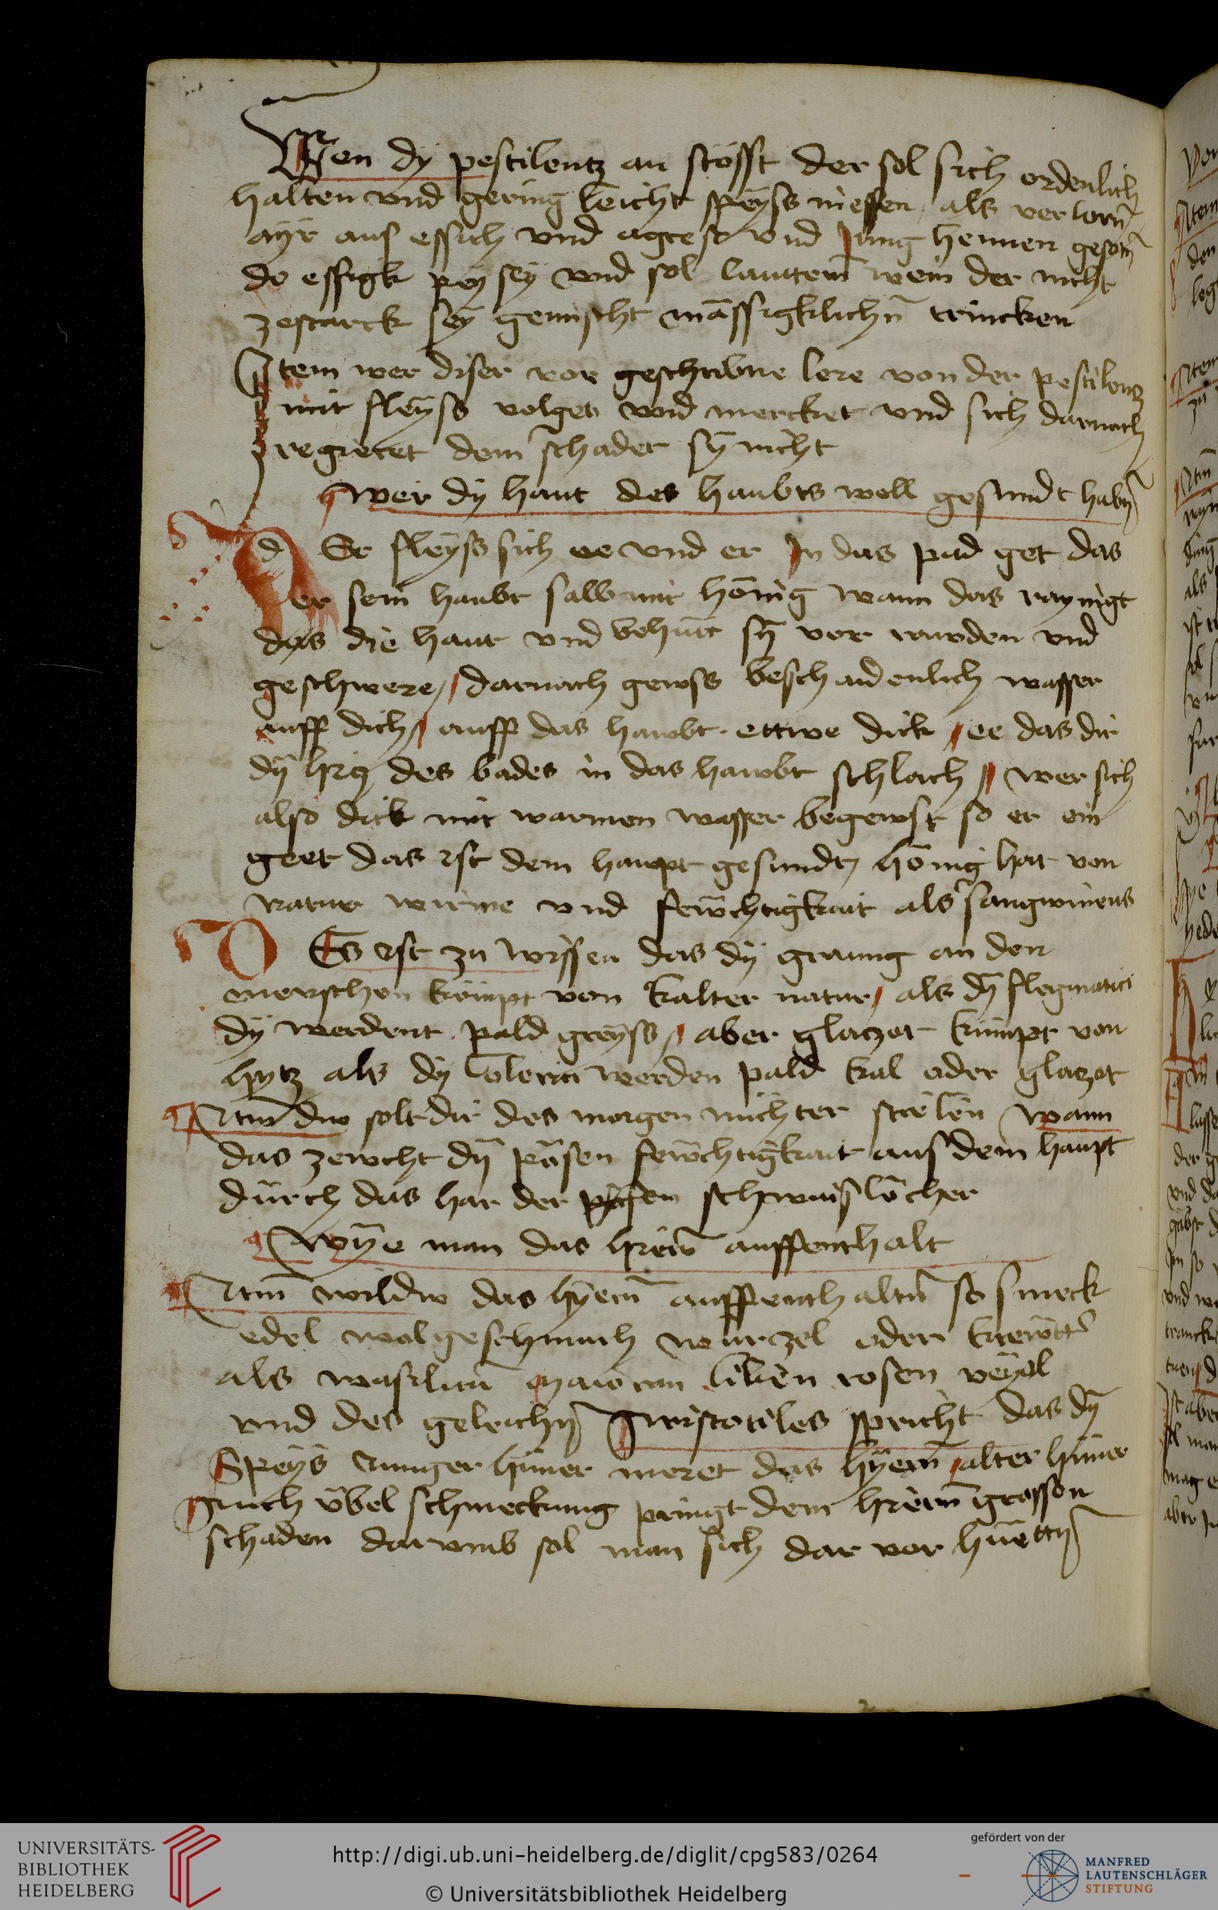 Wen dÿ pestilentz an stösst der sol sich ordenlich
halten vnd gering leicht speÿss niessen als verlorn̄
ayr aus essich vnd agrest vnd Jung hennen gesotn̄
do essigk peÿ seÿ vnd sol lauttern wein der nicht
zestarck seÿ gemischt mässigklichn̄ trincken
Item wer diser vor geschribne lere von der pestilentz
mit fleÿss volget vnd mercket vnd sich darnach
regieret dem schadet sÿ nicht
wer dÿ haut des haubts woll gesundt habn̄
d Er fleÿss sich ee vnd er In das pad get das
er sein haubt salb mit hönig wann das raynigt
das die haut vnd behütt sÿ vor rawden vnd
geschwere / darnach gewss beschaidenlich wasser
auff dich / auff das hawbt ettwe dick / ee das dir
dÿ hicz des bades in das hawbt schlach / wer sich
also dick mit warmen wasser begewst so er ein
geet das ist dem haupt gesundt hönig hat von
natur wirme vnd fewchtigkait als sangwineus
Es ist zu wissen das dÿ graung an den
menschen kömpt von kalter natur / als dÿ flegmatici
dÿ werdent pald greÿss / aber glaczot kümpt von
hytz als dÿ Colerici werden pald kal oder glaczot
Itm̄ duo solt dir des morgen nüchter strelen wann
das zewcht dÿ pösen fewchtigkait aus dem haupt
durch das har der schwaislöcher
Wÿe man das hirn̄ auffenthalt
Itm̄ wildw das hÿern̄ auffenthaltn̄ so smeck
edel wolgeschmach wurzel oder krewtt̄
als wasilicū maioran lilien rosen veÿal
vnd des geleichn̄ Aristotiles spricht das dÿ
Speÿs Junger hüner meret das hÿern̄ / alter hüner
Auch übel schmeckung pringt dem hiern̄ grossen
schaden darvmb sol man sich dar vor hüettn̄
UNIVERSITÄTS-
BIBLIOTHEK
HEIDELBERG
http://digi.ub.uni-heidelberg.de/diglit/cpg583/0264
© Universitätsbibliothek Heidelberg
gefördert von der
MANFRED
LAUTENSCHLÄGER
STIFTUNG